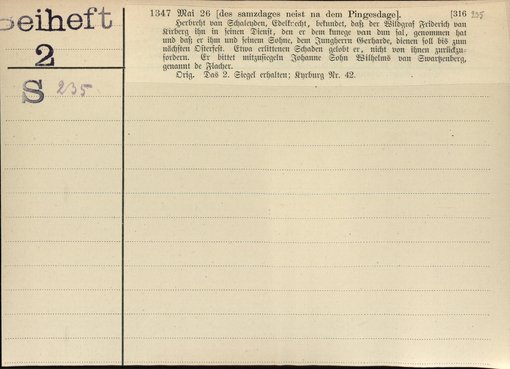 Beiheft
2
S 235.
1347 Mai 26 [des samzdages neist na dem Pingesdage]. [316 235
Herbreht van Schalenden, Edelknecht, bekundet, daß der Wildgraf Friderich van
Kirberg ihn in seinen Dienst, den er dem kunege van dun sal, genommen hat
und daß er ihm und seinem Sohne, dem Jungherrn Gerharde, dienen soll bis zum
nächsten Osterfest. Etwa erlittenen Schaden gelobt er, nicht von ihnen zurückzu-
fordern. Er bittet mitzusiegeln Johanne Sohn Wilhelms van Swartzenberg,
genannt de Flacher.
Orig. Das 2. Siegel erhalten; Kyrburg Nr. 42.